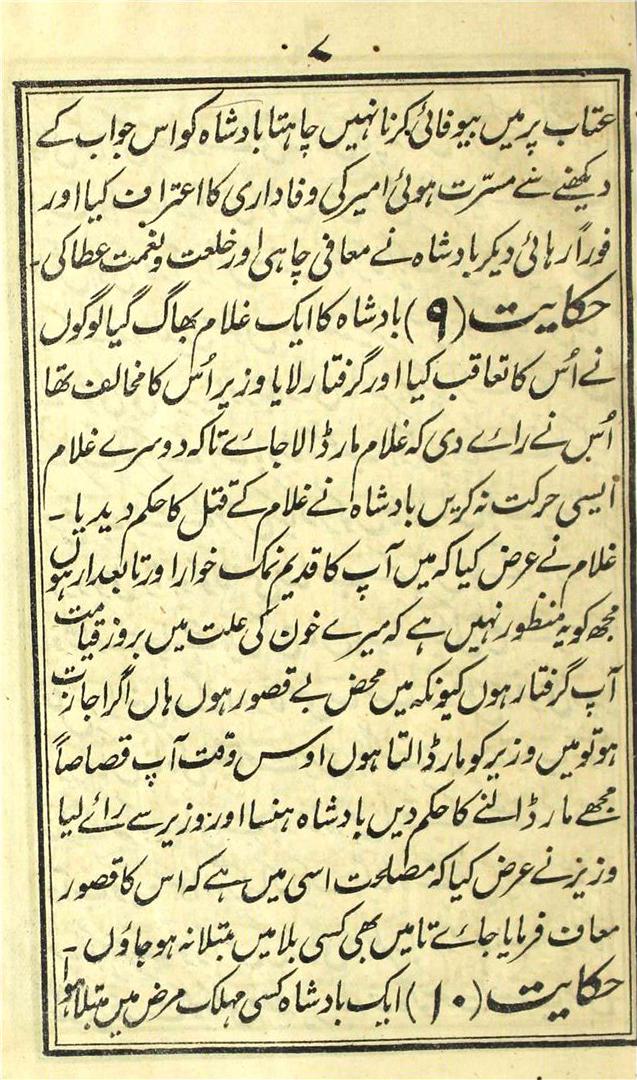 ۷
عتاب پر میں بیوفائی کرنا نہیں چاہتا بادشاہ کو اس جواب کے
دیکھنے سے مسرّت ہوئی امیر کی وفاداری کا اعتراف کیا اور
فوراً رہائی دیکر بادشاہ نے معافی چاہی اور خلعت و نعمت عطا کی۔
حکایت (۹) بادشاہ کا ایک غلام بھاگ گیا لوگوں
نے اُس کا تعاقب کیا اور گرفتار لایا وزیر اُس کا مخالف تھا
اُس نے رائے دی کہ غلام مار ڈالا جائے تاکہ دوسرے غلام
ایسی حرکت نہ کریں بادشاہ نے غلام کے قتل کا حکم دیدیا۔
غلام نے عرض کیا کہ میں آپ کا قدیم نمک خوار اور تابعدار ہوں
مجھ کو یہ منظور نہیں ہے کہ میرے خون کی علت میں بروز قیامت
آپ گرفتار ہوں کیونکہ میں محض بے قصور ہوں ہاں اگر اجازت
ہو تو میں وزیر کو مار ڈالتا ہوں اوس وقت آپ قصاصاً
مجھے مار ڈالنے کا حکم دیں بادشاہ ہنسا اور وزیر سے رائے لیا
وزیر نے عرض کیا کہ مصلحت اسی میں ہے کہ اس کا قصور
معاف فرمایا جائے تا میں بھی کسی بلا میں مبتلا نہ ہو جاؤں۔
حکایت (۱۰) ایک بادشاہ کسی مہلک مرض میں مبتلا ہوا